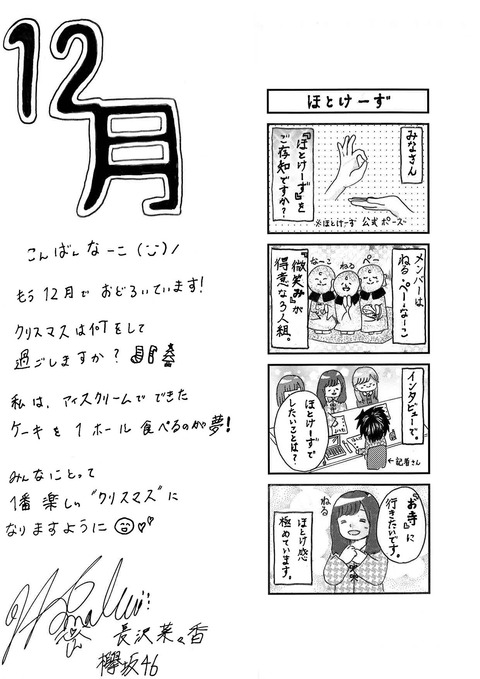 12月
こんばんなーこ(◡̈)/
もう12月でおどろいています!
クリスマスは何をして
過ごしますか?
私は、アイスクリームでできた
ケーキを1ホール食べるのが夢!
みんなにとって
1番楽しい"クリスマス"に
なりますように
長沢菜々香
欅坂46
ほとけーず
みなさん
『ほとけーず』を
ご存知ですか?
※ほとけーず 公式ポーズ
メンバーは
ねる・ぺー・なーこ
なーこ
ねる
ぺー
『微笑み』が
得意な3人組。
インタビューで。
ほとけーずで
したいことは?
←記者さん
『お寺』に
行きたいです。
ねる
ほとけ感
極めています。